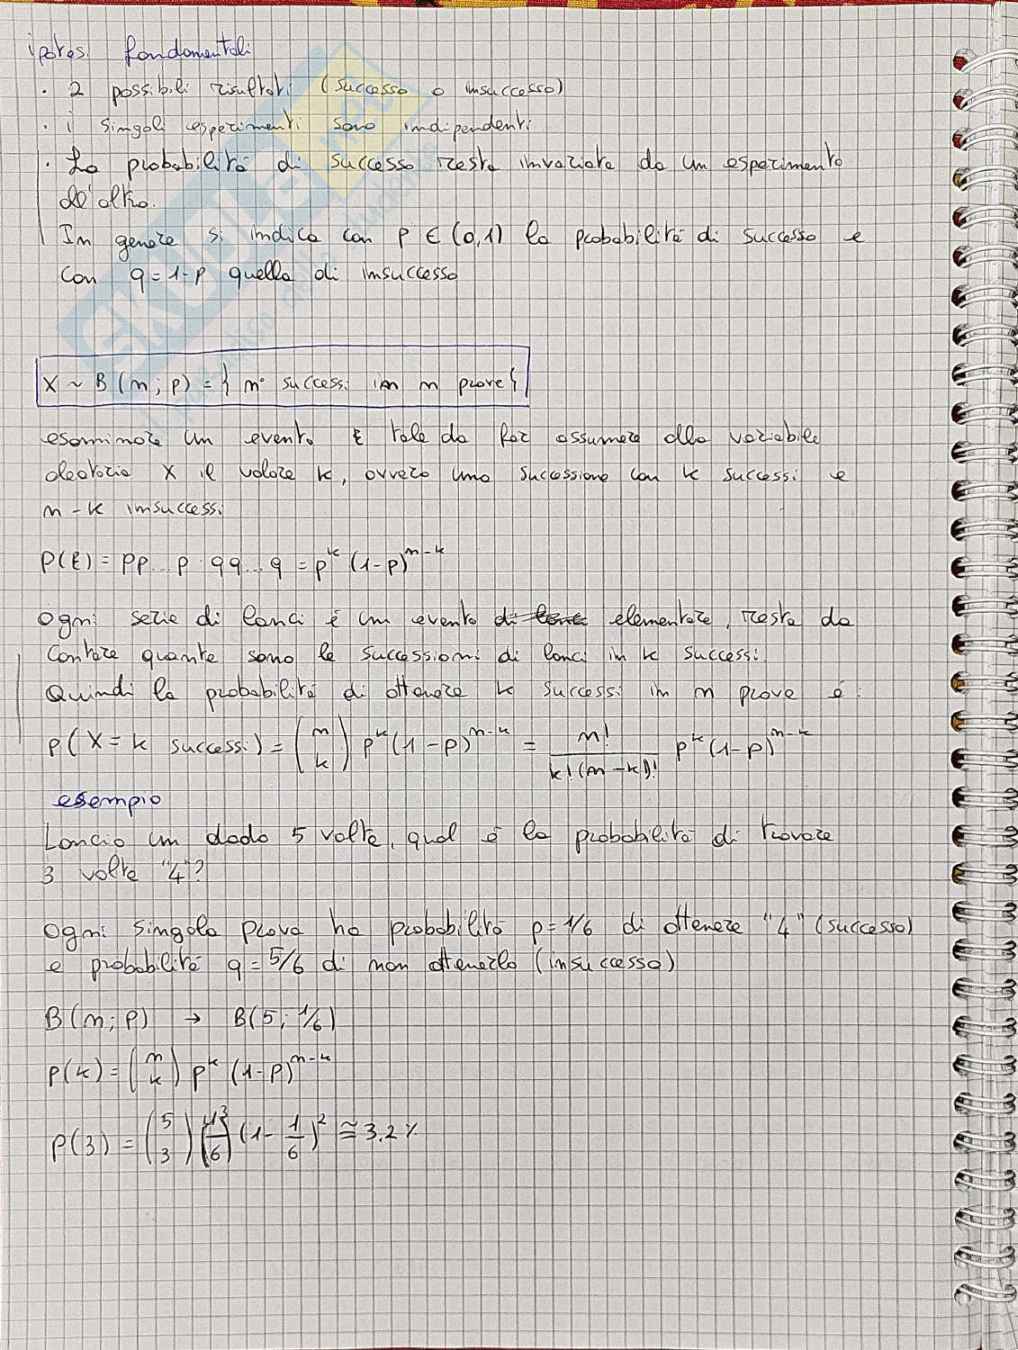 ipotesi fondamentali
• 2 possibili risultati (successo o insuccesso)
• i singoli esperimenti sono indipendenti
• La probabilità di successo resta invariata da un esperimento
all'altro.
In genere si indica con p ∈ (0,1) la probabilità di successo e
con q = 1-p quella di insuccesso
X ~ B(n; p) = { n° successi in n prove }
esaminare un evento E tale da far assumere alla variabile
aleatoria X il valore k, ovvero una successione con k successi e
n-k insuccessi
P(E) = pp...p qq...q = p^k (1-p)^{n-k}
Ogni serie di lanci è un evento elementare, resta da
contare quante sono le successioni di lanci in k successi.
Quindi la probabilità di ottenere k successi in n prove è:
p(X = k successi) = (n k) p^k (1-p)^{n-k} = n! / k!(n-k)! p^k (1-p)^{n-k}
esempio
Lancio un dado 5 volte, qual è la probabilità di trovare
3 volte "4"?
Ogni singola prova ha probabilità p = 1/6 di ottenere "4" (successo)
e probabilità q = 5/6 di non ottenerlo (insuccesso)
B(n; p) → B(5; 1/6)
p(k) = (n k) p^k (1-p)^{n-k}
p(3) = (5 3) (1/6)^3 (1 - 1/6)^2 ≅ 3.2%